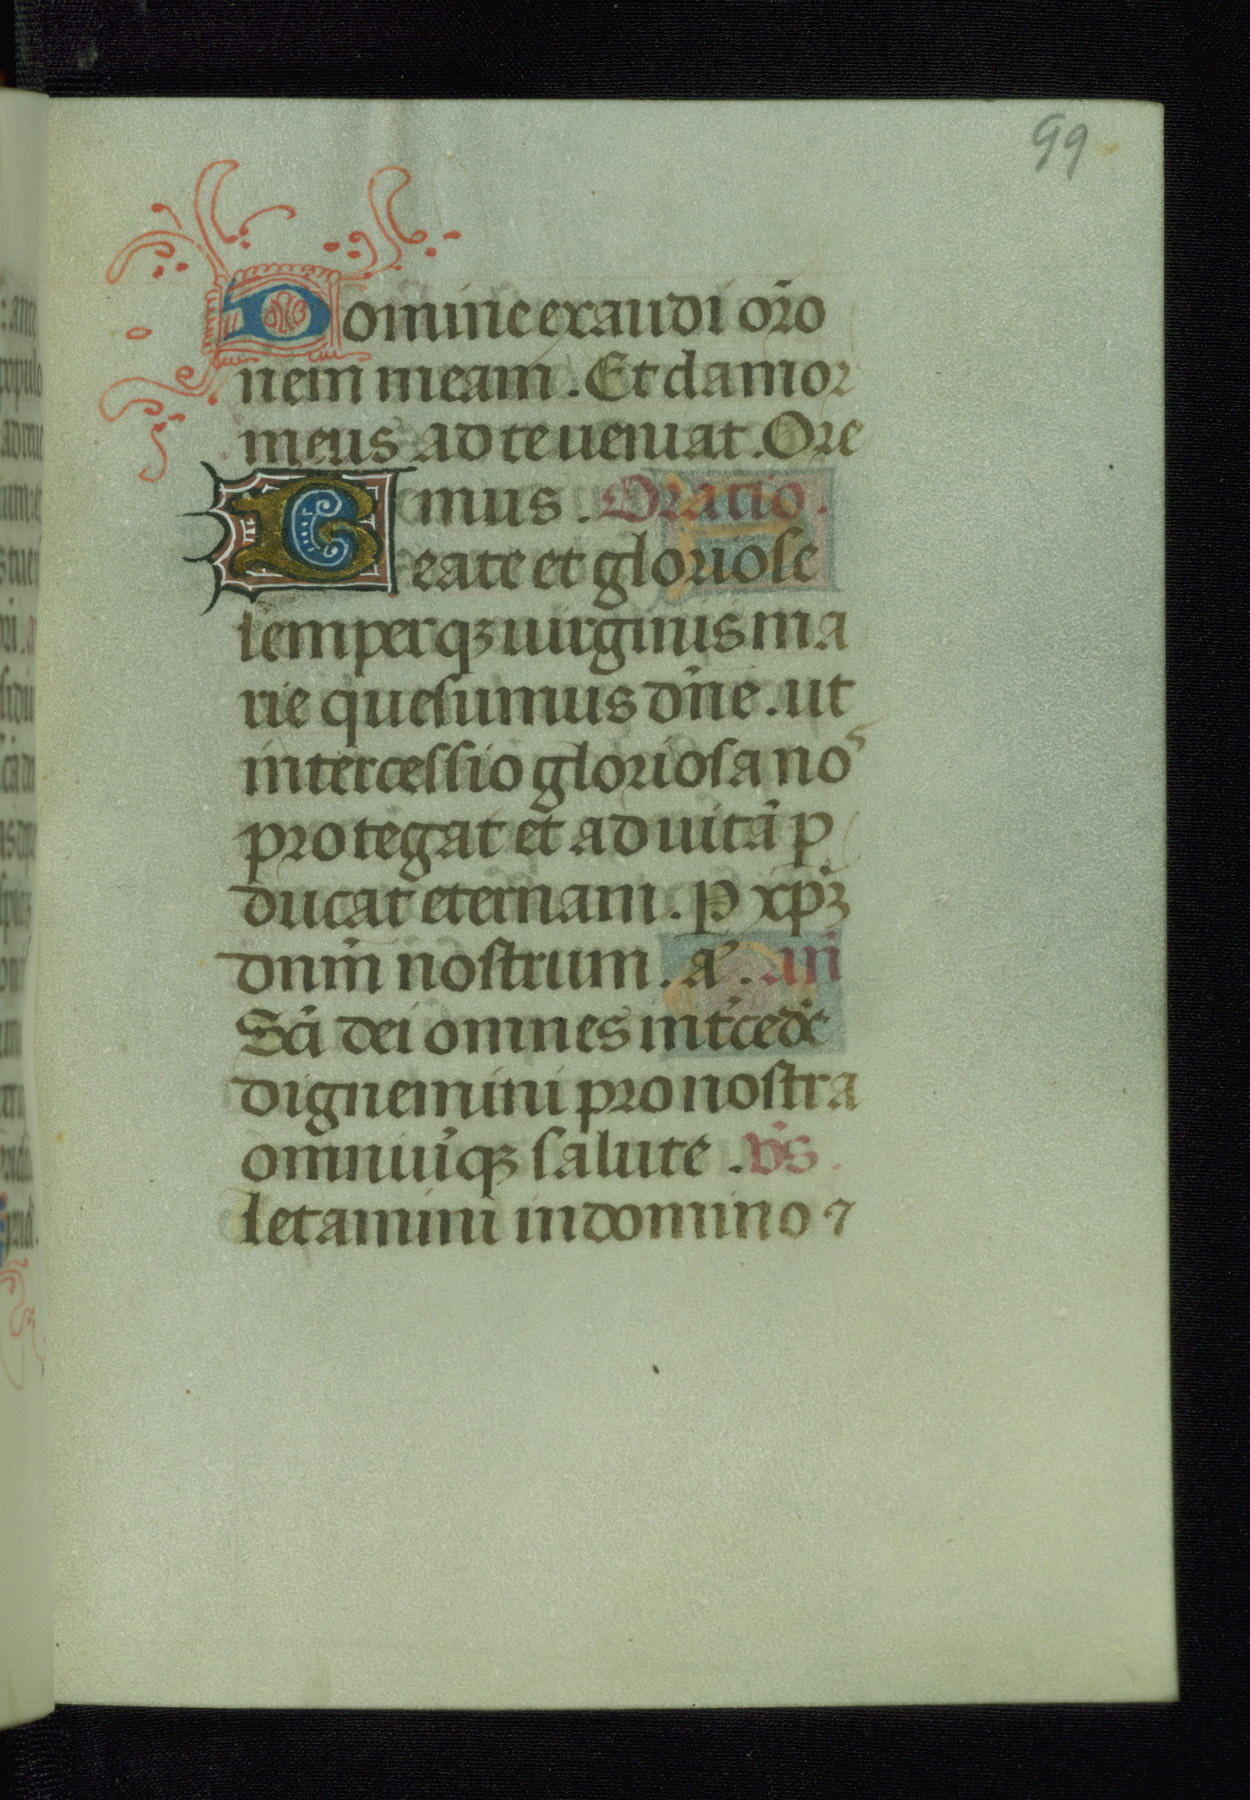 99
Domine exaudi or̃o
nem meam. Et clamor
meus ad te veniat. Ore
mus. Oratio.
Beate et gloriose
semperqꝫ uirginis ma
rie quesumus dn̄e. ut
intercessio gloriosa noˢ
protegat et ad uitā p
ducat eternam. P xp̄ꝫ
dnm̄ nostrum. a͂. an̄
Sc̄i dei omnes int̄cede
dignemini pro nostra
omniūqꝫ salute. v̄s.
letamini in domino ⁊